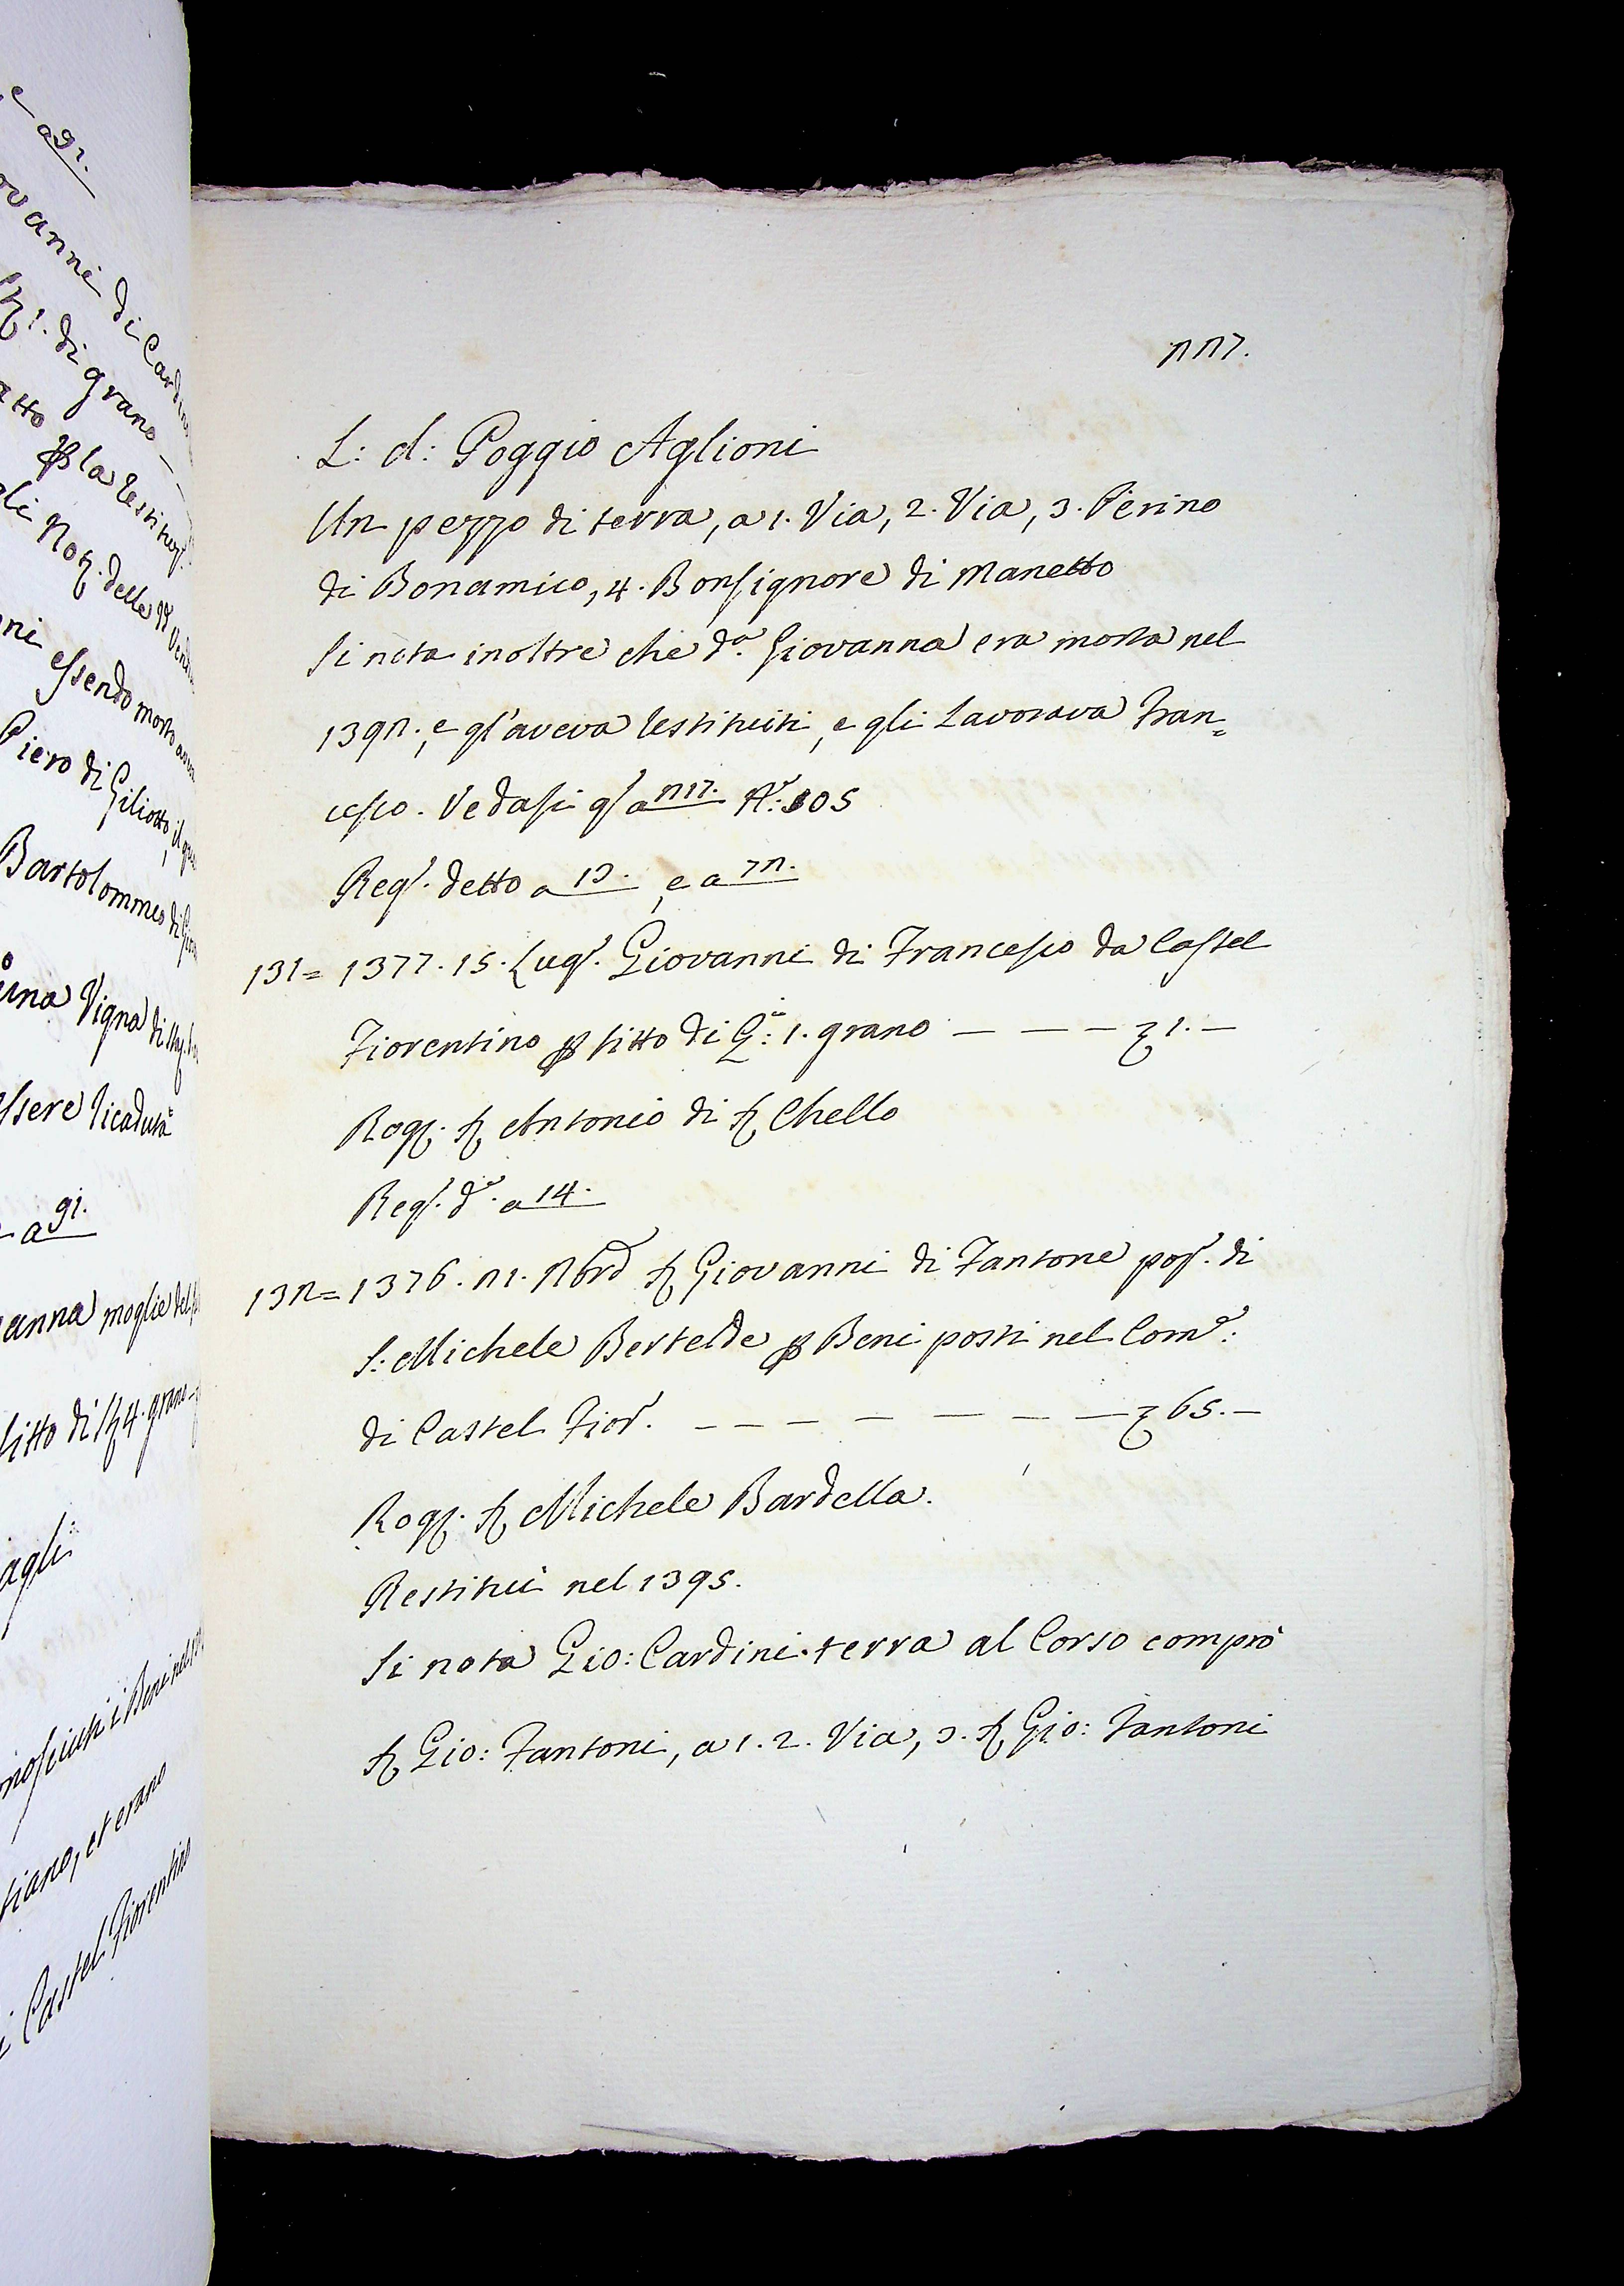 227.
L: d: Poggio Aglioni
Un pezzo di terra, a 1. Via, 2. Via, 3. Perino
di Bonamico, 4. Bonsignore di Manetto
Si nota inoltre che d.ª Giovanna era morta nel
1392., e gl'aveva restituiti, e gli Lavorava Fran=
cesco. Vedasi q.º a 217. N.º: 305
Reg.º detto a 13. , e a 72.
131= 1377. 15. Lug.º Giovanni di Francesco da Castel
Fiorentino p fitto di Q.ª: 1. grano — — — 1. —
Rog. S. Antonio di S. Chello
Reg.º d.º a 14.
132= 1376. 21. 9bre S. Giovanni di Fantone pop.º di
S: Michele Bertelde p Beni posti nel Com.e:
di Castel Fior.º — — — — — — — 65. —
Rog. S. Michele Bardella.
Restituì nel 1395.
Si nota Gio: Cardini. terra al Corso comprò
S. Gio: Fantoni, a 1. 2. Via, 3. S. Gio: Fantoni
a 92.
ovanni di Cardin
1. di grano —
atto p la restituz.
gli Not. delle
ni essendo morto
Piero di Giliotto, il
Bartolommeo di
una Vigna di
essere ricaduta
a 91.
anna moglie del
fitto di 4. grano
agli
i Beni nel
tiano, et erano
i Castel Fiorentino